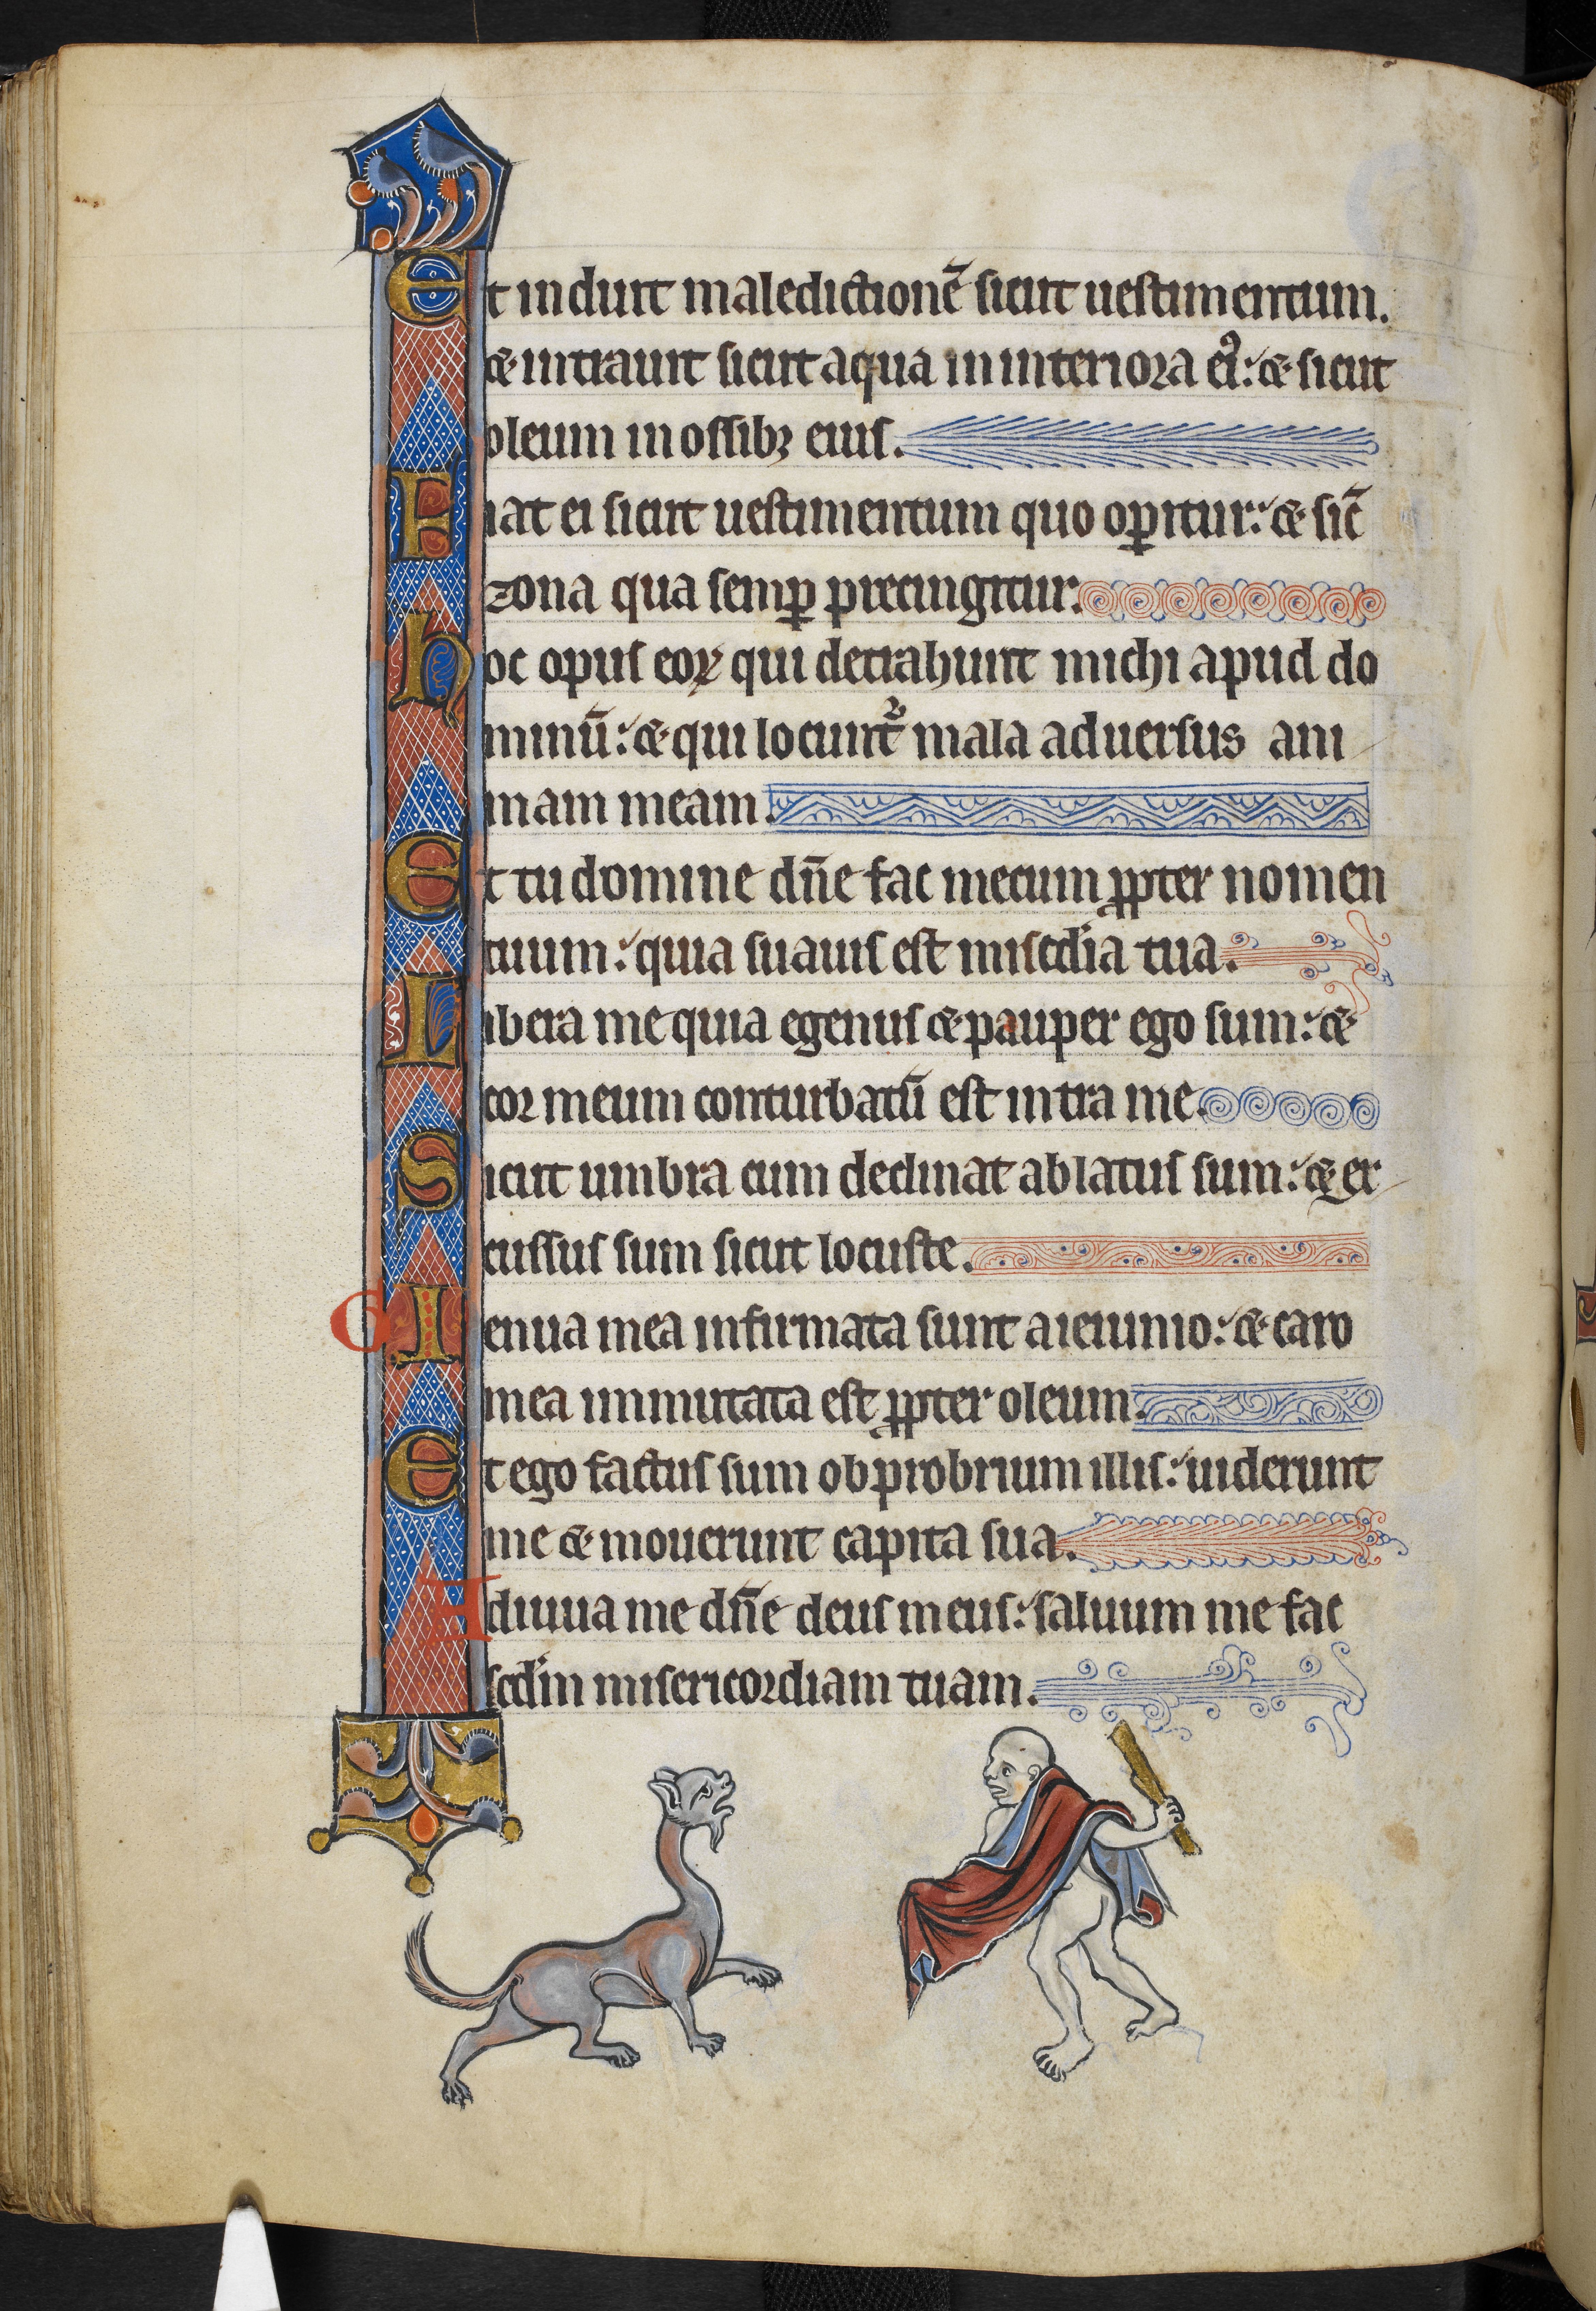 Et induit maledictionē sicut uestimentum.
⁊ intrauit sicut aqua in interiora eiꝰ: ⁊ sicut
oleum in ossibꝫ eius.
Fiat ei sicut uestimentum quo oꝑitur: ⁊ sic̄
zona qua semꝑ precingitur.
hoc opus eoꝝ qui detrahunt michi apud do
minū: ⁊ qui locunt᷑ mala aduersus ani
mam meam.
Et tu domine dn̄e fac mecum ꝓpter nomen
tuum: quia suauis est miscd̓ia tua.
Libera me quia egenus ⁊ pauper ego sum: ⁊
cor meum conturbatū est intra me.
Sicut umbra cum declinat ablatus sum: ⁊ ex
cussus sum sicut locuste.
G Ienua mea infirmata sunt a ieiunio: ⁊ caro
mea inmutata est ꝓpter oleum.
Et ego factus sum obprobrium illis: uiderunt
me ⁊ mouerunt capita sua.
Adiuua me dn̄e deus meus: saluum me fac
scd̓m misericordiam tuam.